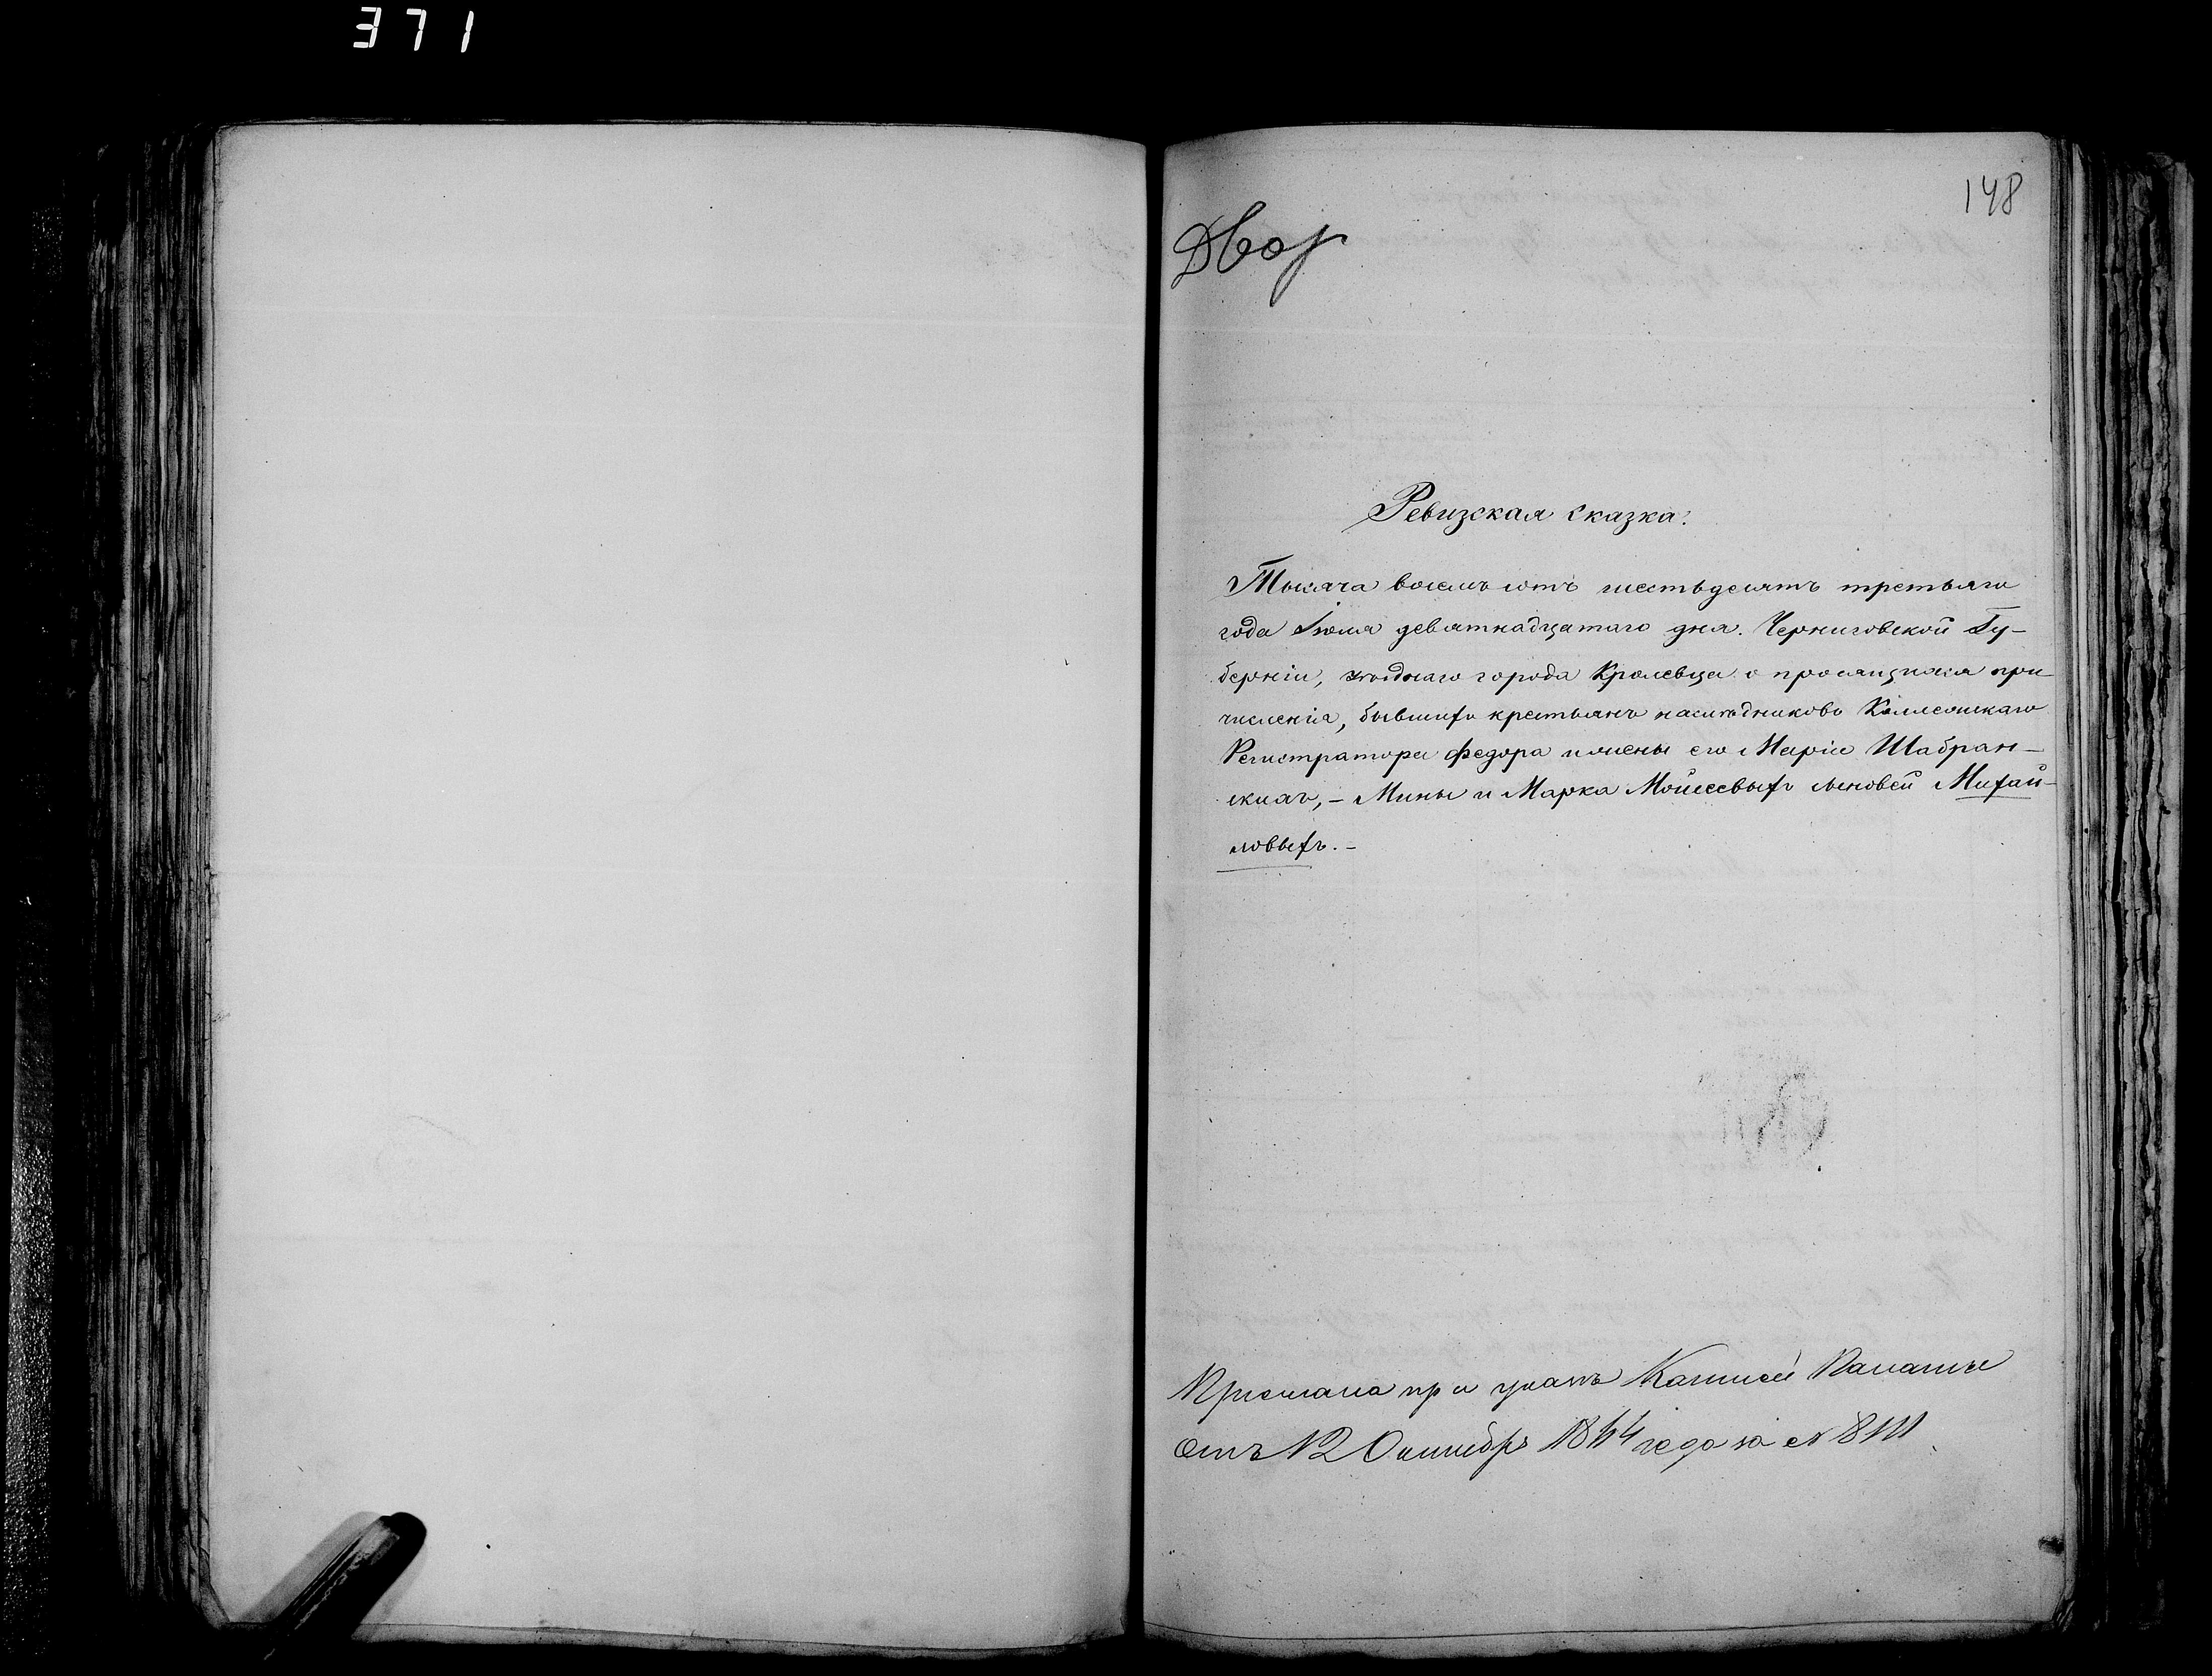 371
148
Двор
Ревизская сказка.
Тысяча восемь сотъ шестьдесятъ третьяго
года Іюля девятнадцатаго дня. Черниговской Гу-
берніи, уѣзднаго города Кролевца о просящихся при
численія, бывшихъ крестьянъ наслѣдниковъ Коллежскаго
Регистратора Федора и жены его Маріи Шабран-
скихъ, - Мины и Марка Мойсеевыхъ сыновей Михай-
ловыхъ. -
Прислана при указѣ Казенной Палаты
отъ 12 Октября 1864 года за №